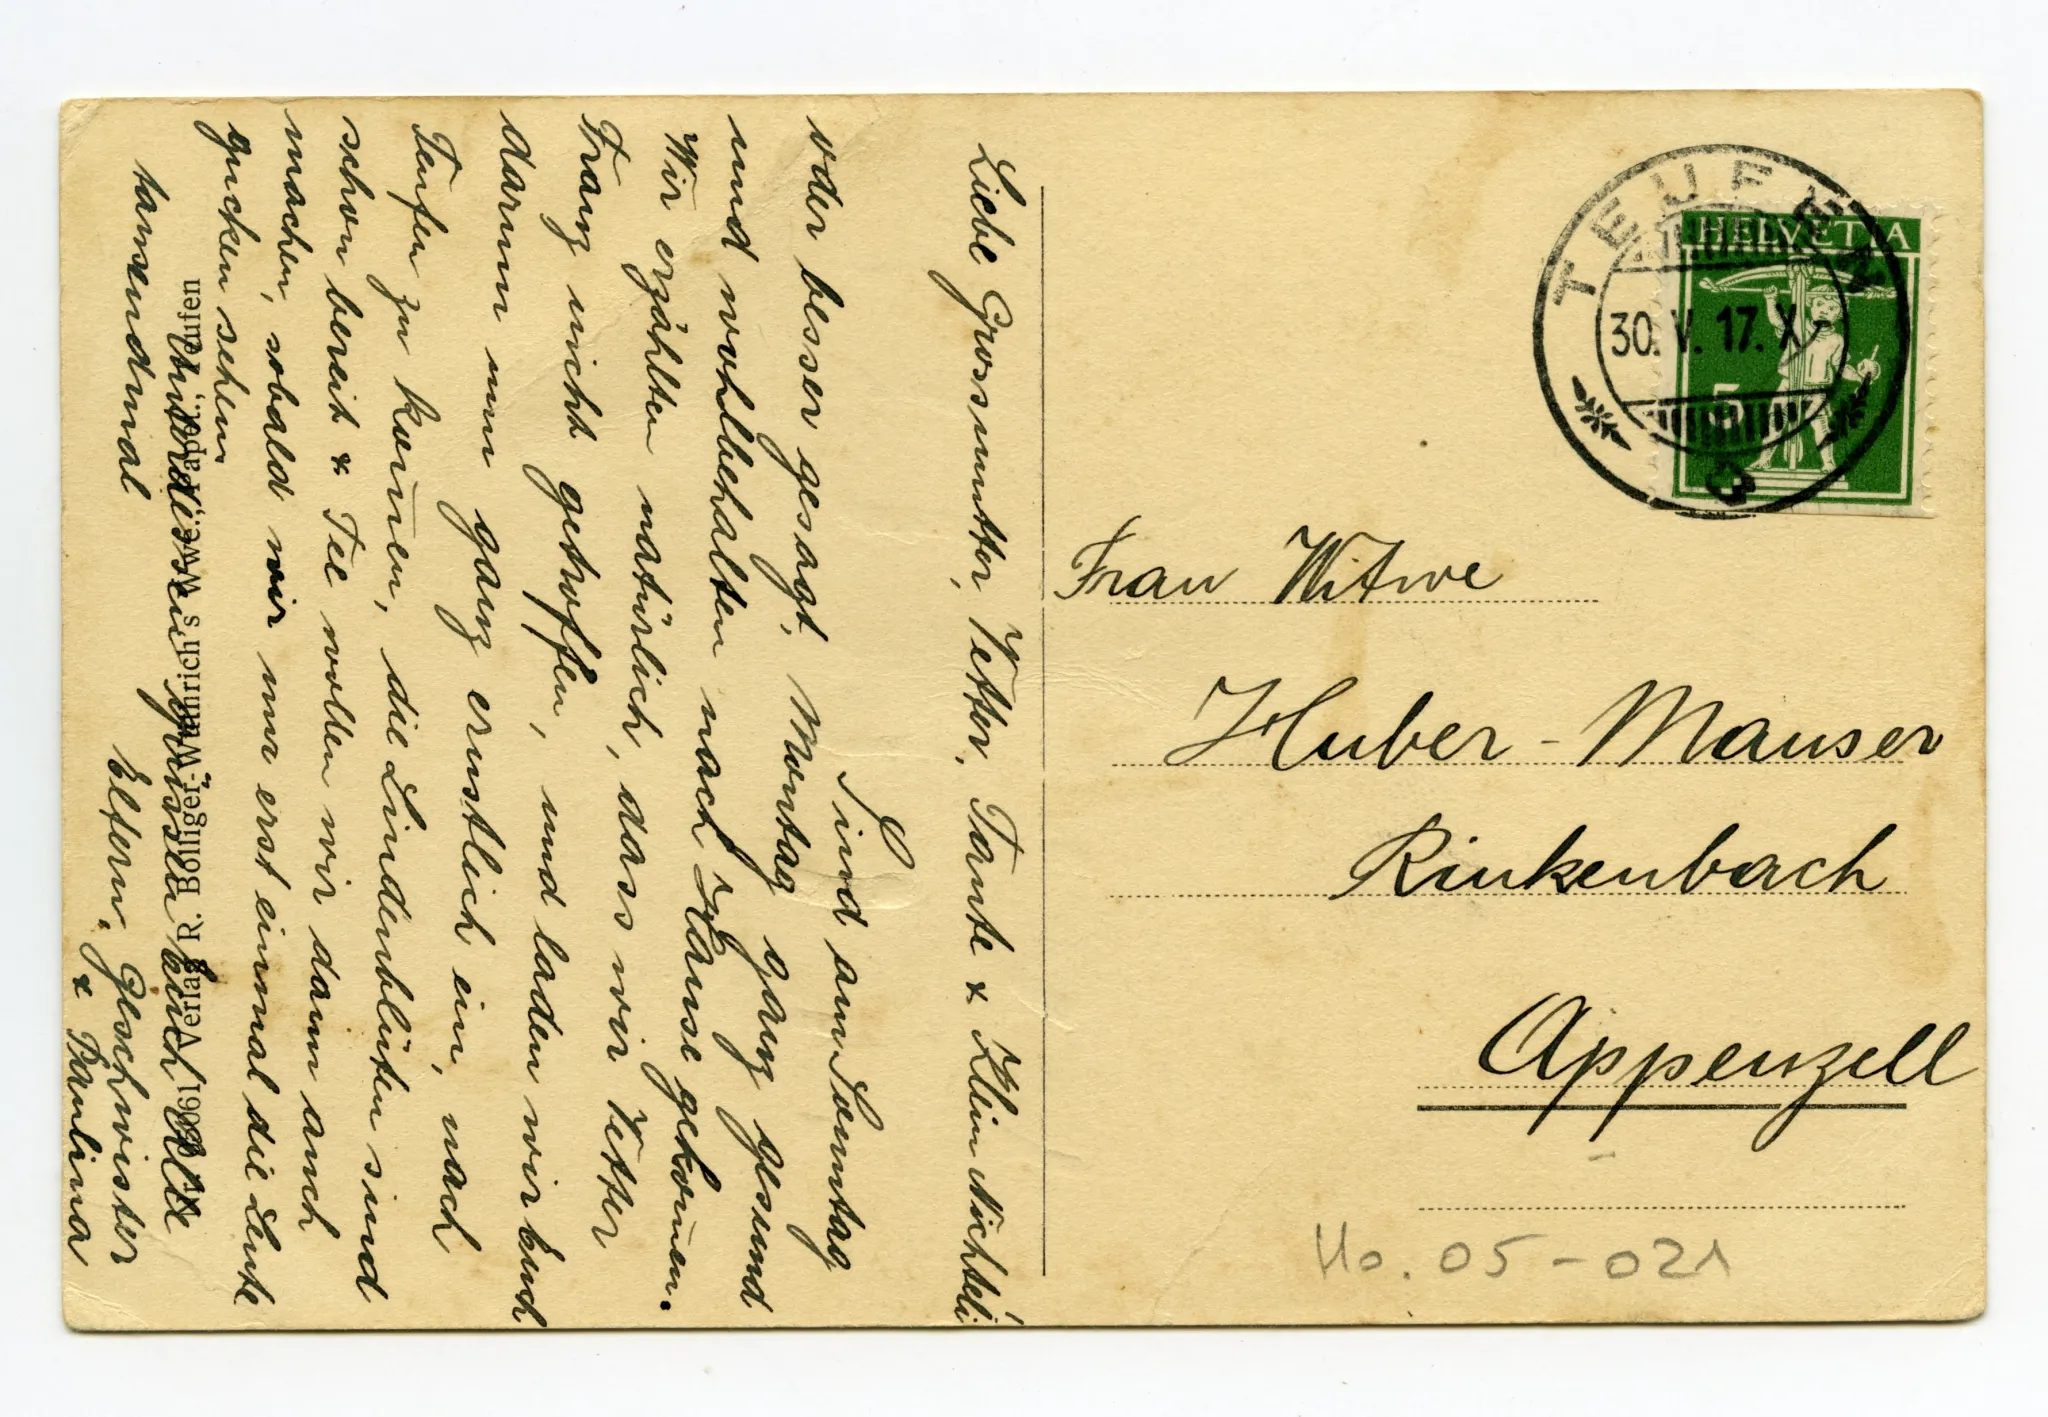 Liebe Grossmutter, Vetter, Tante & Klein Nichteli!
Sind am Sonntag
oder besser gesagt, Montag ganz gesund
und wohlbehalten nach Hause gekom̄en.
Wir erzählten natürlich, dass wir Vetter
Franz nicht getroffen, und laden wir Euch
darum nun ganz ernstlich ein, nach
Teufen zu kom̄en, die Lindenblüten sind
schon bereit & Tee wollen wir dann auch
machen, sobald wir nur erst einmal die Leute
gucken sehen.
Unterdissen grüssen Euch Alle
tausendmal
Eltern, Geschwister
& Paulina
1961 Verlag R. Bolliger-Wünrich's Wwe., Teufen
TEUFEN
30. V. 17. X
3
HELVETIA
5
Frau Witwe
Huber-Mauser
Rinkenbach
Appenzell
Ho. 05-021